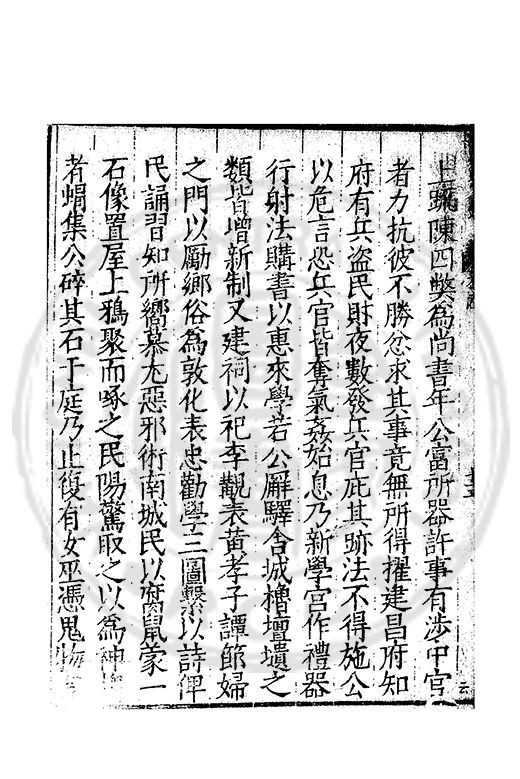 上疏陳四弊為尚書年公富所器許事有涉中官
者力抗彼不勝忿求其事竟無所得擢建昌府知
府有兵盗民財夜數發兵官庇其跡法不得施公
以危言恐兵官皆奪氣姦始息乃新學宫作禮器
行射法購書以惠來學若公廨驛舍城櫓壇墳之
類皆增新制又建祠以祀李觀表黄孝子譚節婦
之門以勵鄉俗為敦化表忠勸學三圖繫以詩俾
民誦習知所嚮慕尤惡邪術南城民以腐鼠蒙一
石像置屋上鴉聚而啄之民陽驚取之以為神
者蝟集公碎其石于庭乃止復有女巫憑鬼物